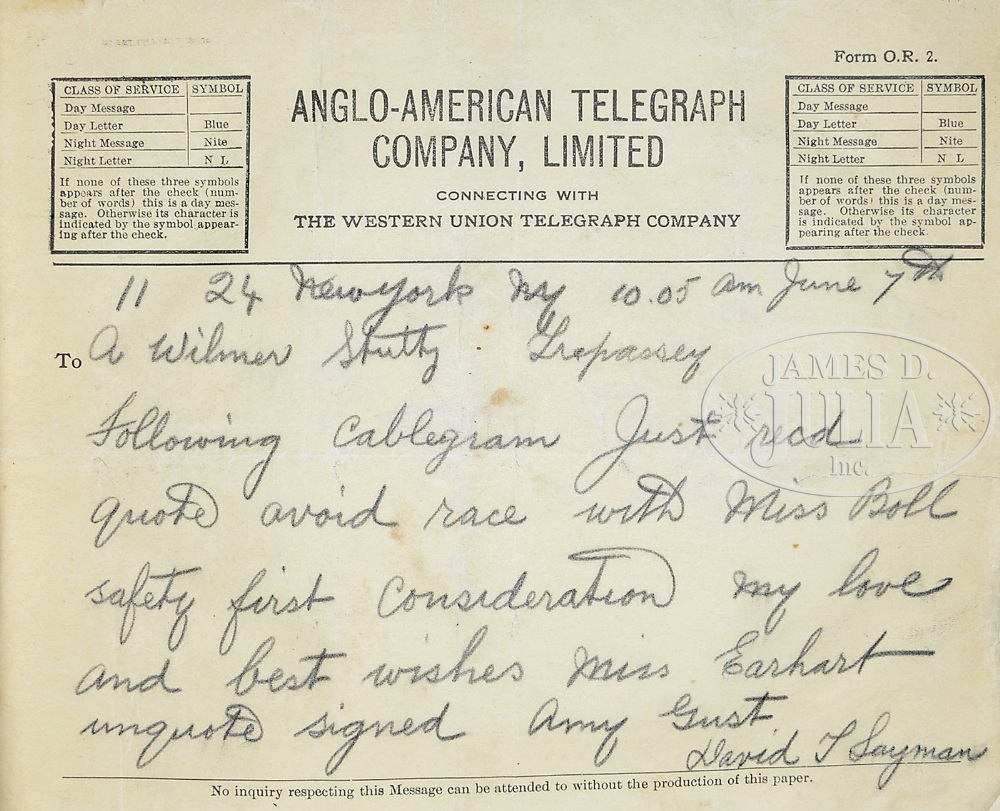 Form O.R. 2.
CLASS OF SERVICE SYMBOL
Day Message
Day Letter Blue
Night Message Nite
Night Letter N L
If none of these three symbols
appears after the check (num-
ber of words) this is a day mes-
sage. Otherwise its character is
indicated by the symbol appear-
ing after the check.
ANGLO-AMERICAN TELEGRAPH
COMPANY, LIMITED
CONNECTING WITH
THE WESTERN UNION TELEGRAPH COMPANY
CLASS OF SERVICE SYMBOL
Day Message
Day Letter Blue
Night Message Nite
Night Letter N L
If none of these three symbols
appears after the check (num-
ber of words) this is a day mes-
sage. Otherwise its character
is indicated by the symbol ap-
pearing after the check.
11 24 New York Ny 10.05 am June 7th
To A Wilmer Stultz Trepassey
Following Cablegram Just recd
quote avoid race with Miss Boll
safety first Consideration my love
and best wishes Miss Earhart
unquote signed Amy Gust
David T Layman
No inquiry respecting this Message can be attended to without the production of this paper.
JAMES D.
JULIA
Inc.